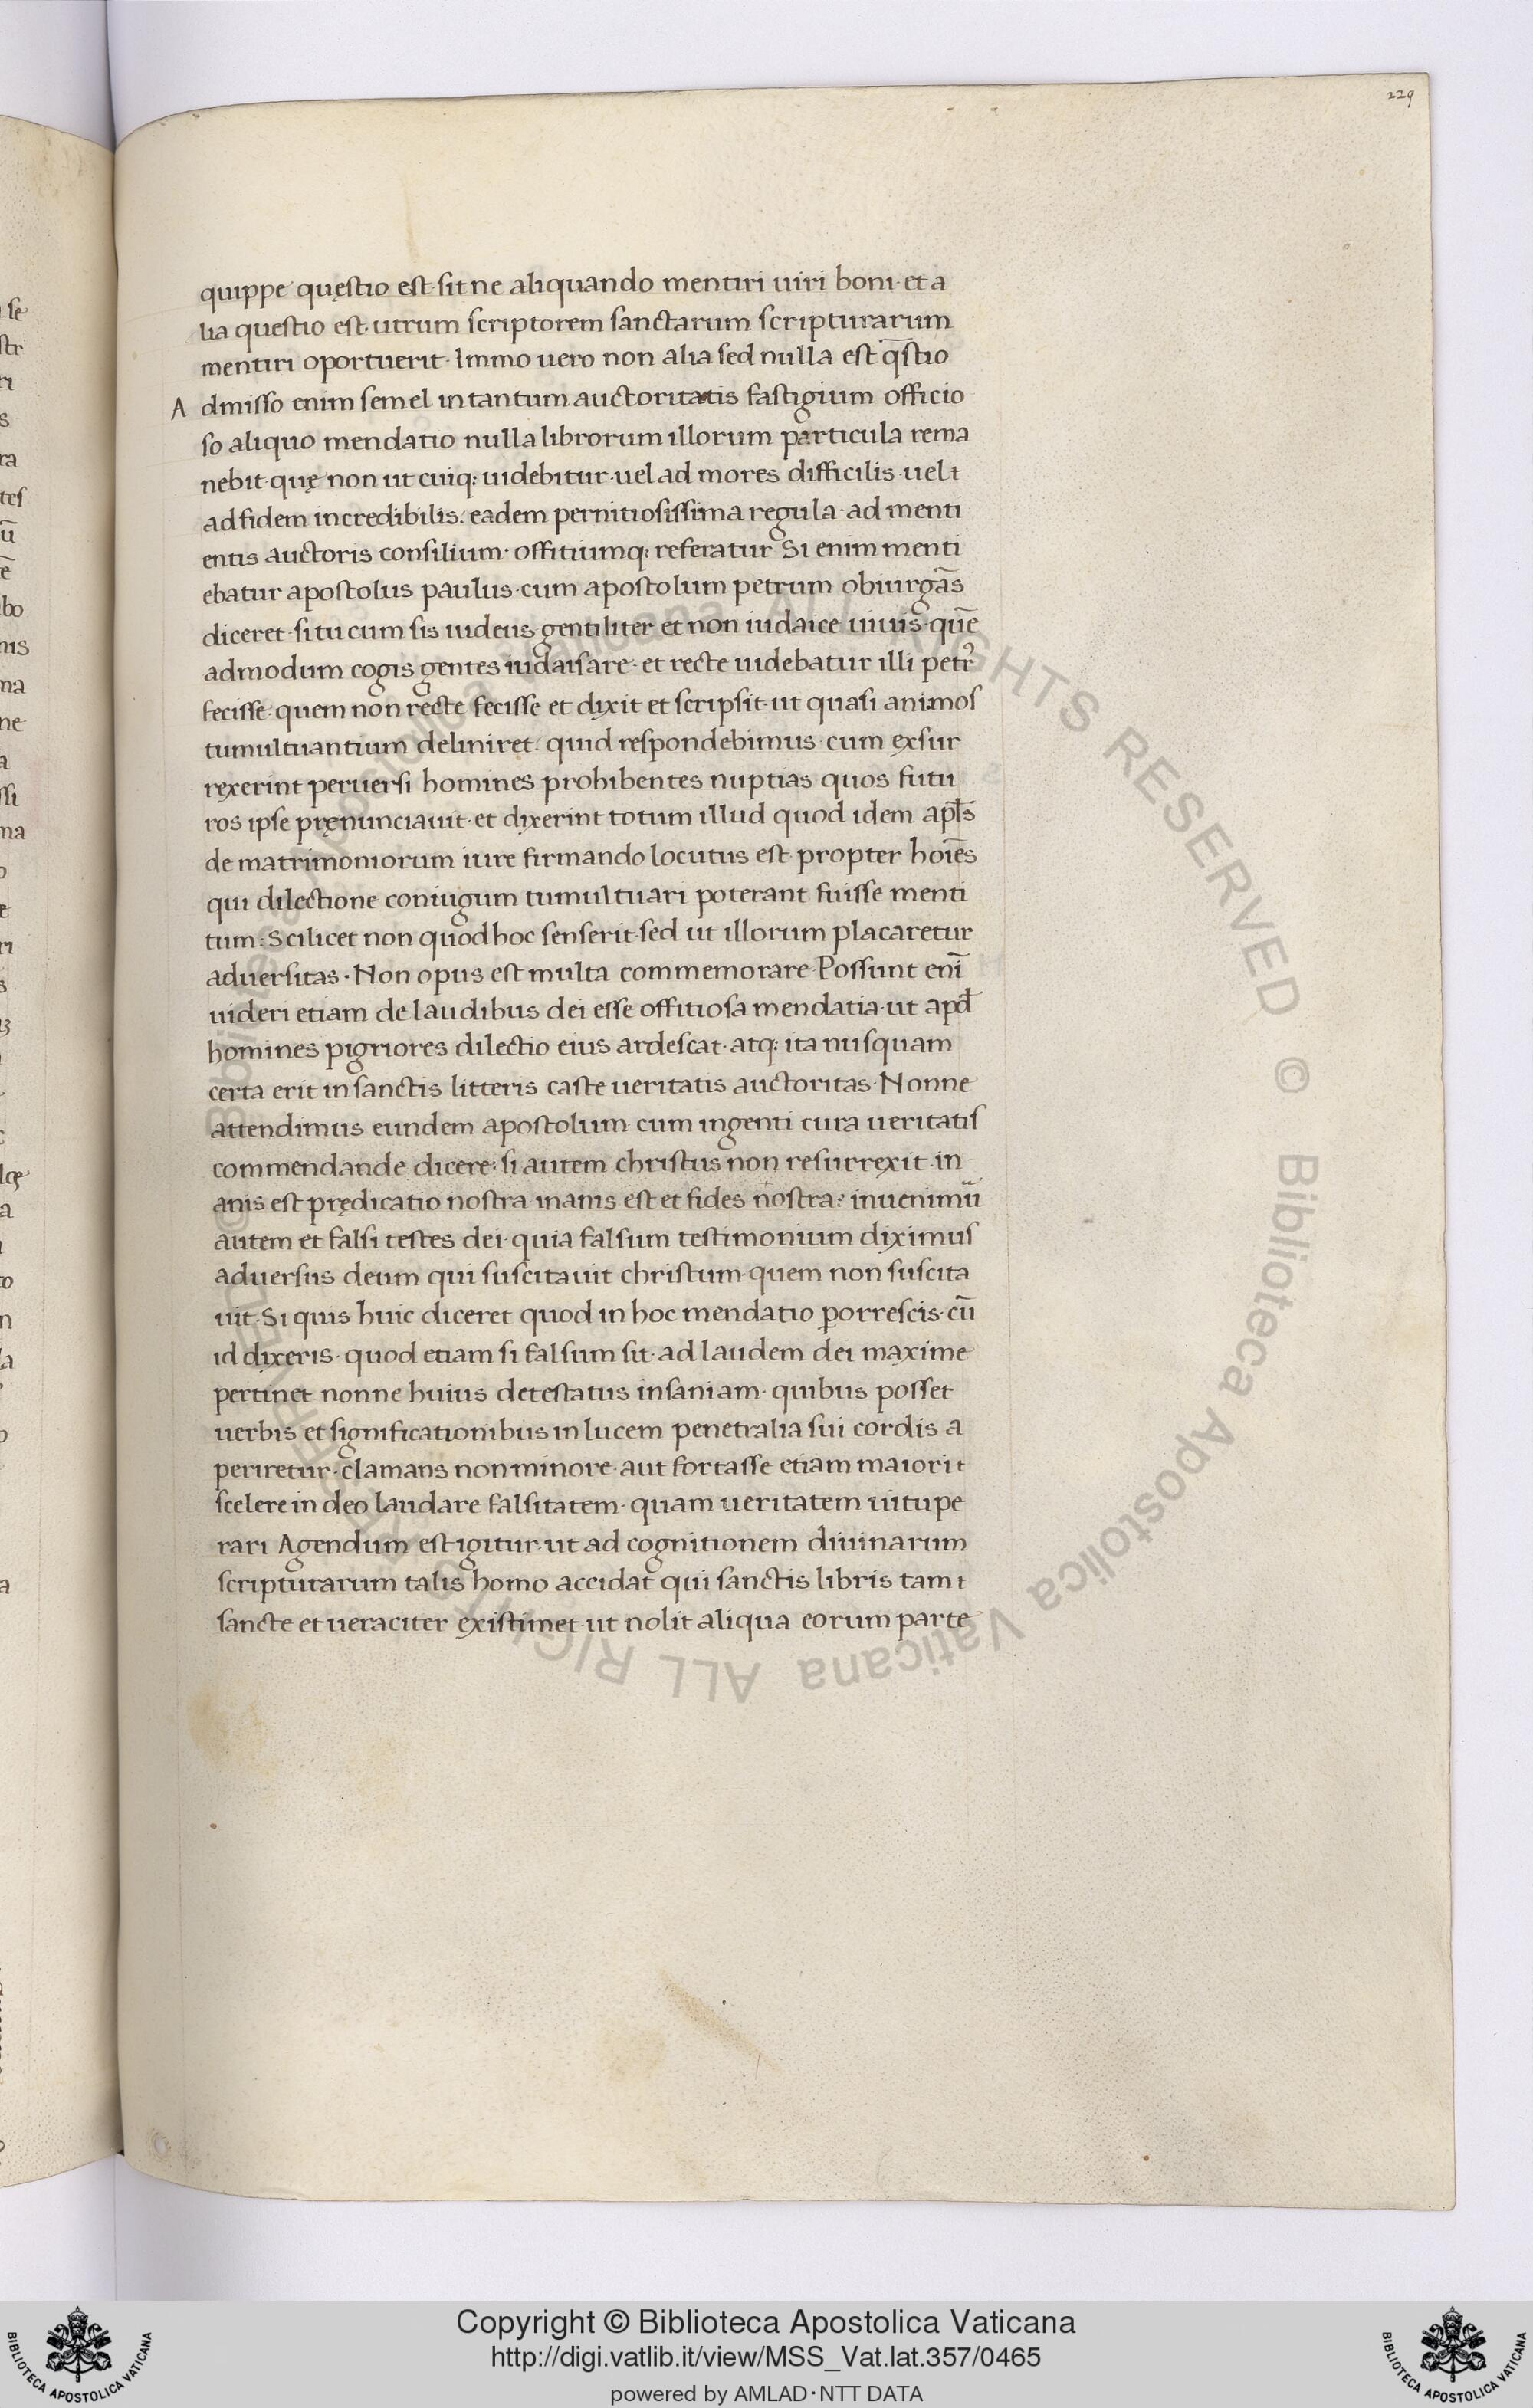 229
quippe quęstio est sit ne aliquando mentiri uiri boni· et a
lia questio est· utrum scriptorem sanctarum scripturarum
mentiri oportuerit· Immo uero non alia sed nulla est q̄stio
A dmisso enim semel in tantum auctoritatis fastigium officio
so aliquo mendatio nulla librorum illorum particula rema
nebit· quę non ut cuiq: uidebitur· uel ad mores difficilis· uel t
ad fidem incredibilis: eadem pernitiosissima regula· ad menti
entis auctoris consilium· offitiumq: referatur Si enim menti
ebatur apostolus paulus· cum apostolum petrum obiurgās
diceret· si tu cum sis iudeus gentiliter et non iudaice uiuis· quē
admodum cogis gentes iudaisare· et recte uidebatur illi petr᾽
fecisse· quem non recte fecisse et dixit et scripsit· ut quasi animos
tumultuantium deliniret· quid respondebimus· cum exsur
rexerint peruersi homines prohibentes nuptias quos futu
ros ipse pręnunciauit· et dixerint totum illud quod idem apl̄s
de matrimoniorum iure firmando locutus est propter hoīes
qui dilectione coniugum tumultuari poterant fuisse menti
tum: Scilicet non quod hoc senserit· sed ut illorum placaretur
aduersitas· Non opus est multa commemorare Possunt enī
uideri etiam de laudibus dei esse offitiosa mendatia· ut apd̄
homines pigriores dilectio eius ardescat· atq: ita nusquam
certa erit in sanctis litteris caste ueritatis auctoritas· Nonne
attendimus eundem apostolum cum ingenti cura ueritatis
commendande dicere: si autem christus non resurrexit· in
anis est prędicatio nostra inanis est et fides nostra: inuenimū
autem et falsi testes dei· quia falsum testimonium diximus
aduersus deum qui suscitauit christum· quem non suscita
uit· Si quis huic diceret quod in hoc mendatio porrescis· cū
id dixeris· quod etiam si falsum sit· ad laudem dei maxime
pertinet nonne huius detestatus insaniam· quibus posset
uerbis et significationibus in lucem penetralia sui cordis a
periretur· clamans non minore· aut fortasse etiam maiori t
scelere in deo laudare falsitatem· quam ueritatem uitupe
rari Agendum est igitur· ut ad cognitionem diuinarum
scripturarum talis homo accidat qui sanctis libris tam t
sancte et ueraciter existimet· ut nolit aliqua eorum parte
Copyright © Biblioteca Apostolica Vaticana
http://digi.vatlib.it/view/MSS_Vat.lat.357/0465
powered by AMLAD·NTT DATA